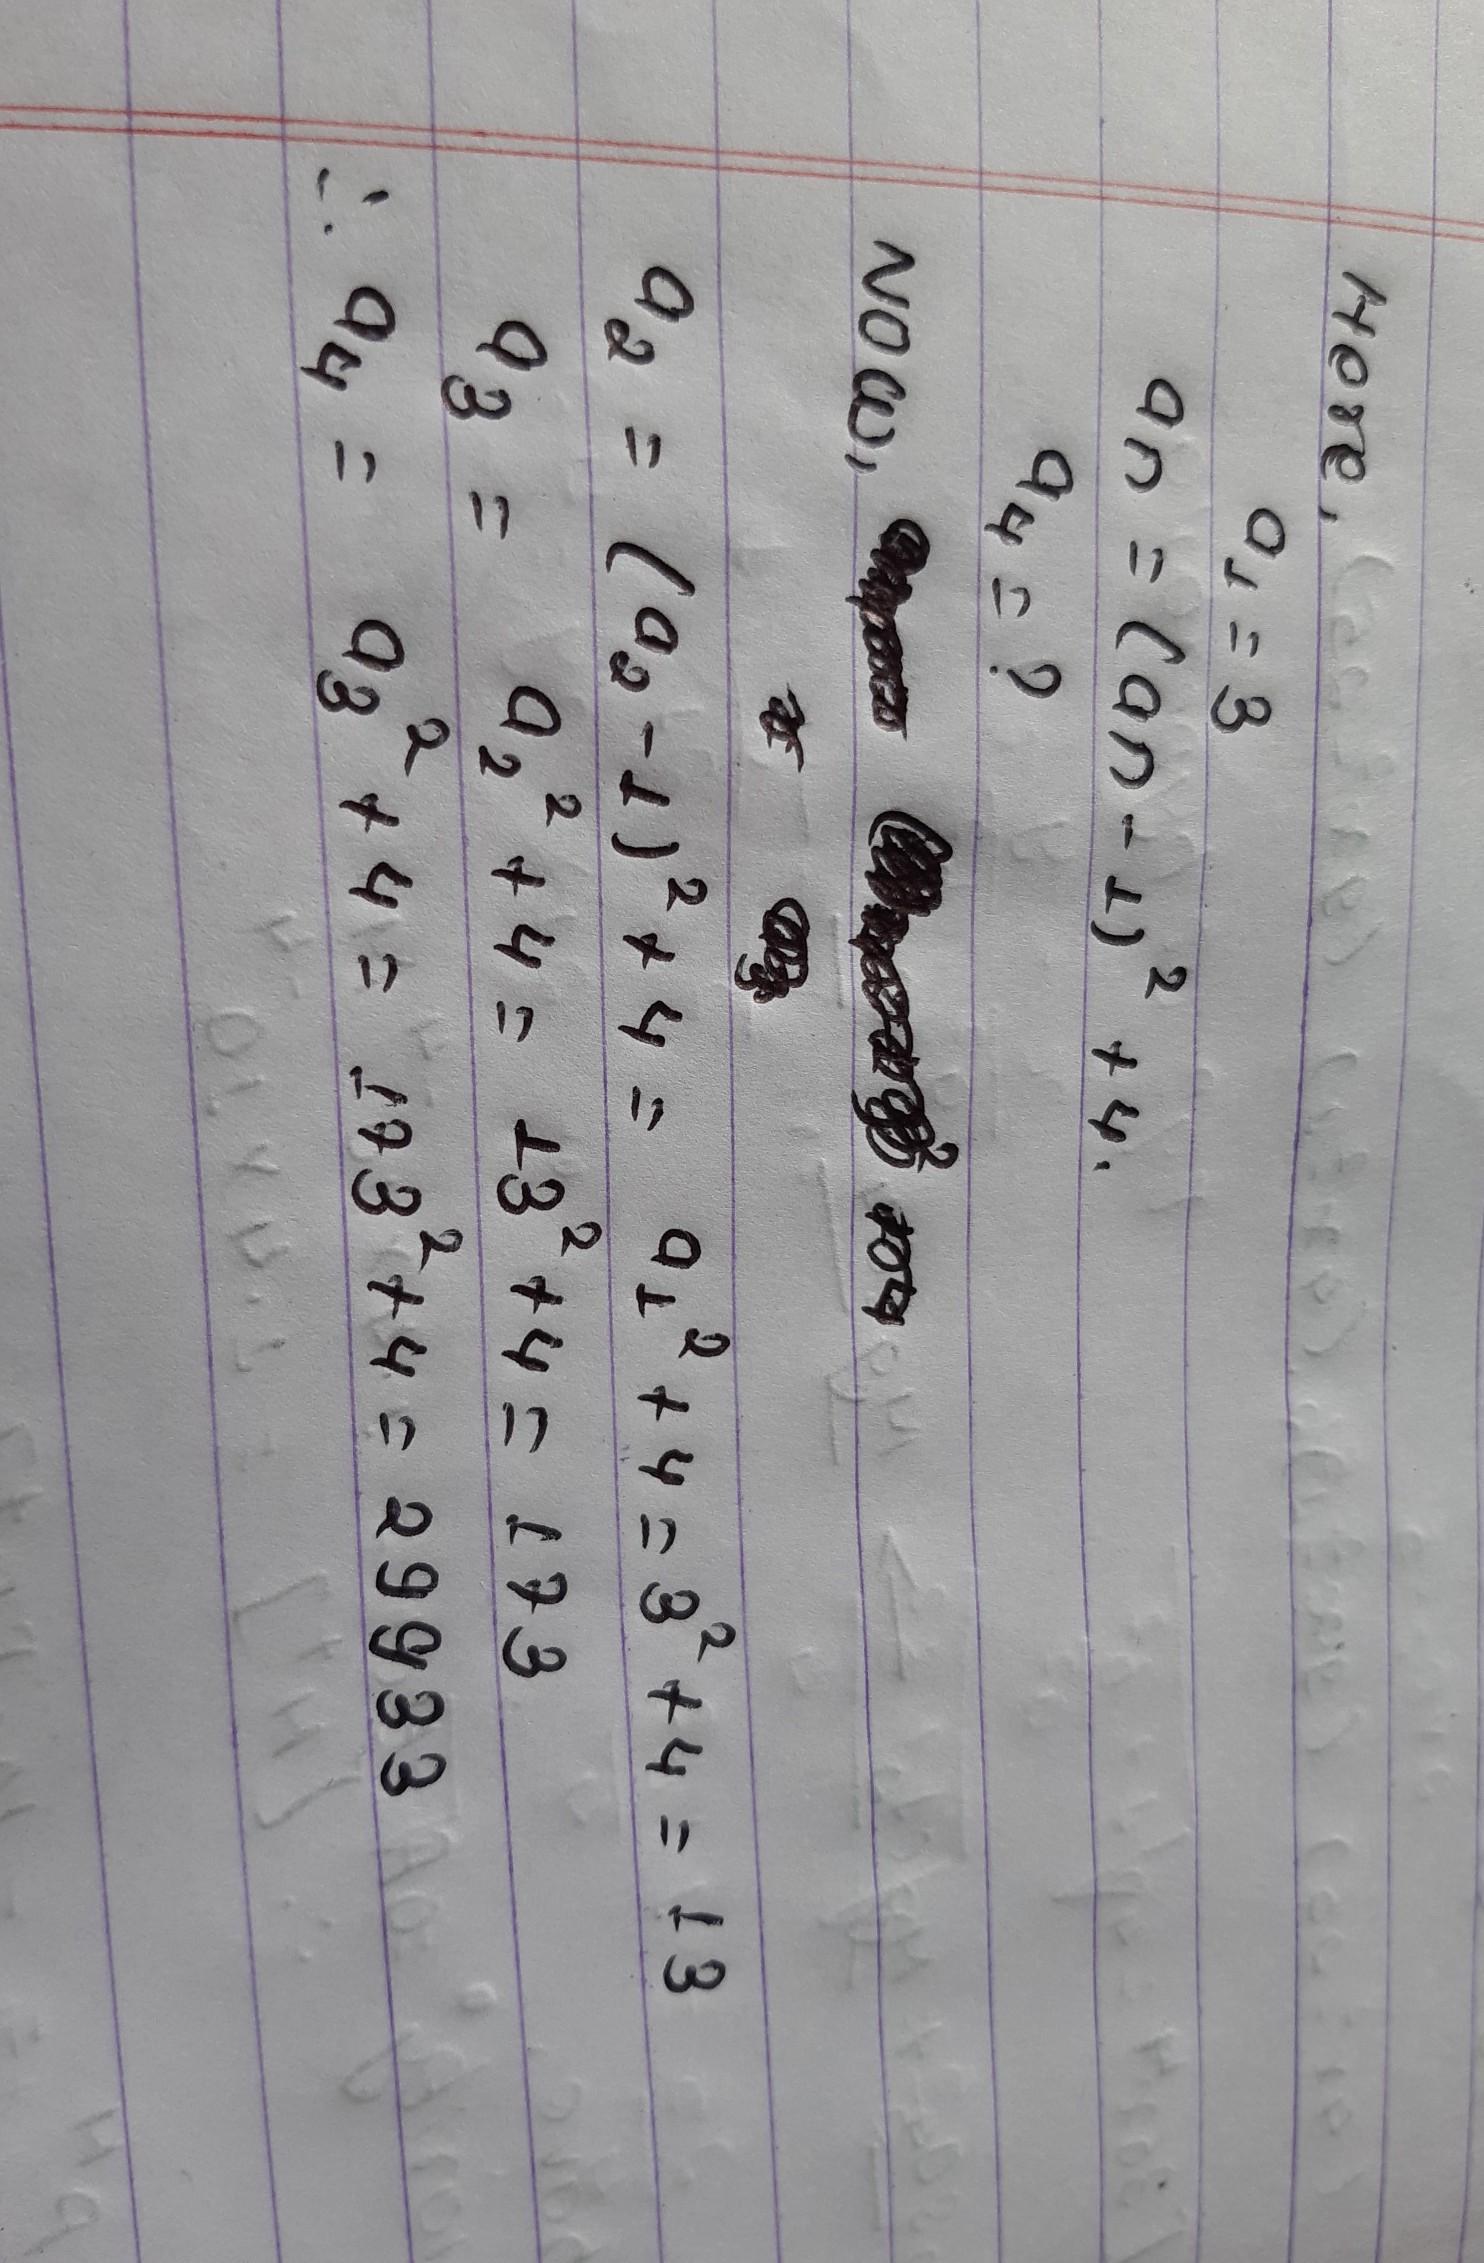 Here,
a₁ = 3
an = (an - 1)² + 4.
a₄ = ?
Now,
a₂ = (a₂ - 1)² + 4 = a₁² + 4 = 3² + 4 = 13
a₃ = a₂² + 4 = 13² + 4 = 173
∴ a₄ = a₃² + 4 = 173² + 4 = 29933